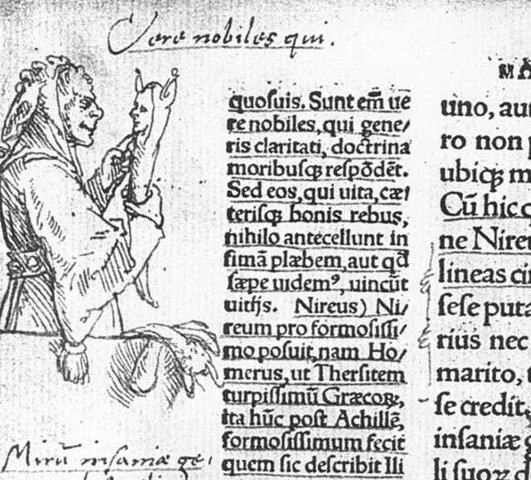 Vere nobiles qui.
quosuis. Sunt em̃ ue
re nobiles, qui gene/
ris claritati, doctrina
moribusq́ʒ respõdẽt.
Sed eos, qui uita, cæt
terisq́ʒ bonis rebus,
nihilo antecellunt in
fimã plæbem, aut qđ
sæpe uidemꝰ, uincũt
uitijs. Nireus) Ni/
reum pro formosissi/
mo posuit, nam Ho/
merus, ut Thersitem
turpissimũ Græcoꝝ,
ita hũc post Achillẽ,
formosissimum fecit
quem sic describit Ili
Mirũ insaniæ ge
MA
uno, au
ro non
ubiqʒ m
Cũ hic
ne Nireu
lineas ci
sese puta
rius nec
marito,
se credit,
insaniæ
li suoꝝ d